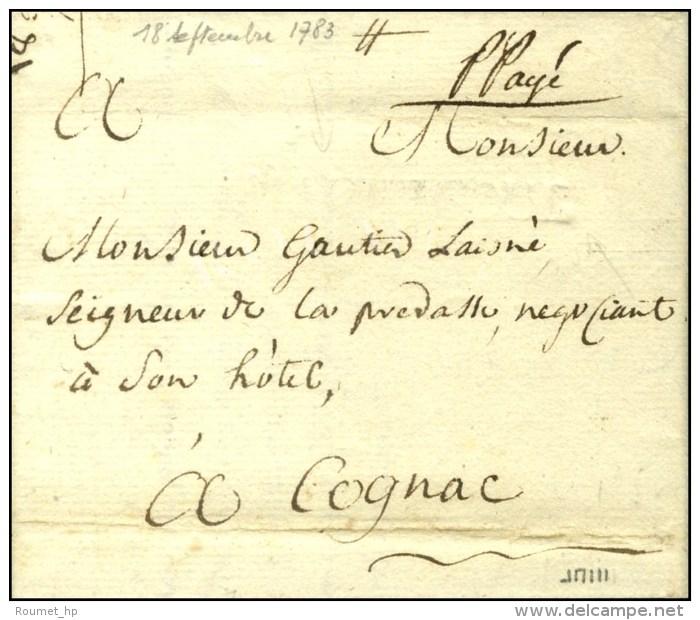 18 septembre 1783
PPayé
A Monsieur.
Monsieur Gautier Laisné
Seigneur de la predasse, negociant
à Son hôtel,
À Cognac
Roumet_hp
www.delcampe.net